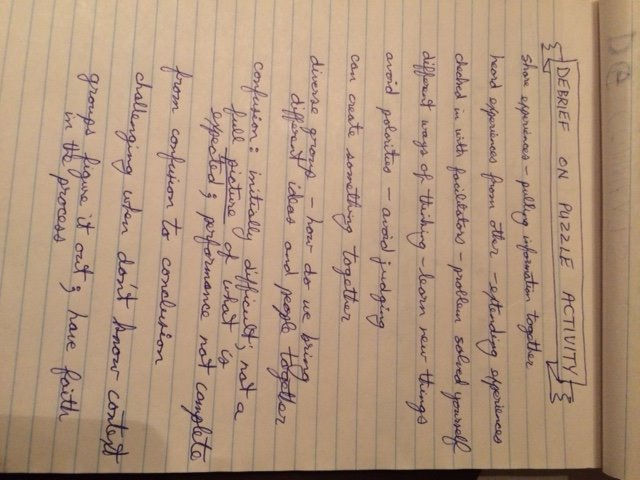 DEBRIEF ON PUZZLE ACTIVITY
share experiences - pulling information together
heard experiences from other - extending experiences
checked in with facilitators - problem solved yourself
different ways of thinking - learn new things
avoid polarities - avoid judging
can create something together
diverse group - how do we bring
different ideas and people together
confusion: initially difficult; not a
full picture of what is
expected; performance not complete
from confusion to conclusion
challenging when don't know context
groups figure it out; have faith
in the process